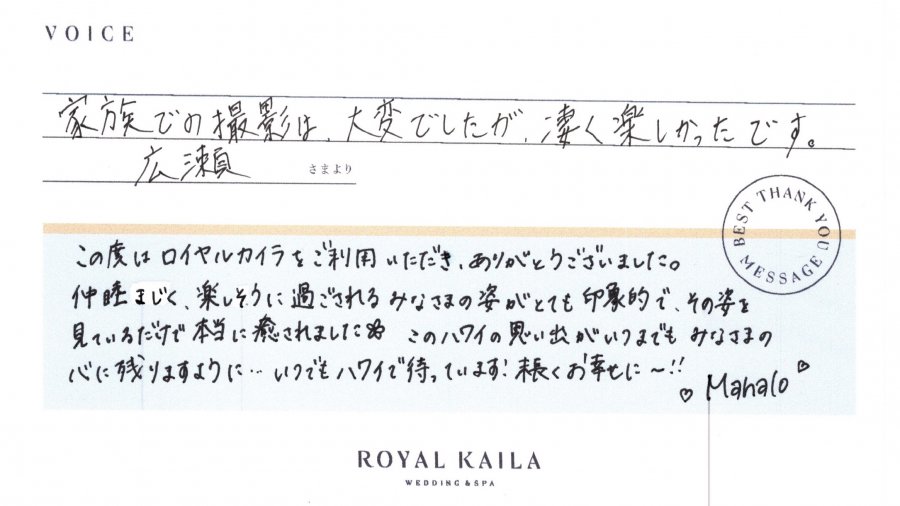 VOICE
家族での撮影は、大変でしたが、凄く楽しかったです。
広瀬 さまより
BEST THANK YOU MESSAGE
この度はロイヤルカイラをご利用いただき、ありがとうございました。
仲睦まじく、楽しそうに過ごされるみなさまの姿がとても印象的で、その姿を
見ているだけで本当に癒されました このハワイの思い出がいつまでもみなさまの
心に残りますように… いつでもハワイで待っています! 末長くお幸せに〜!!
♡ Mahalo ♡
ROYAL KAILA
WEDDING & SPA